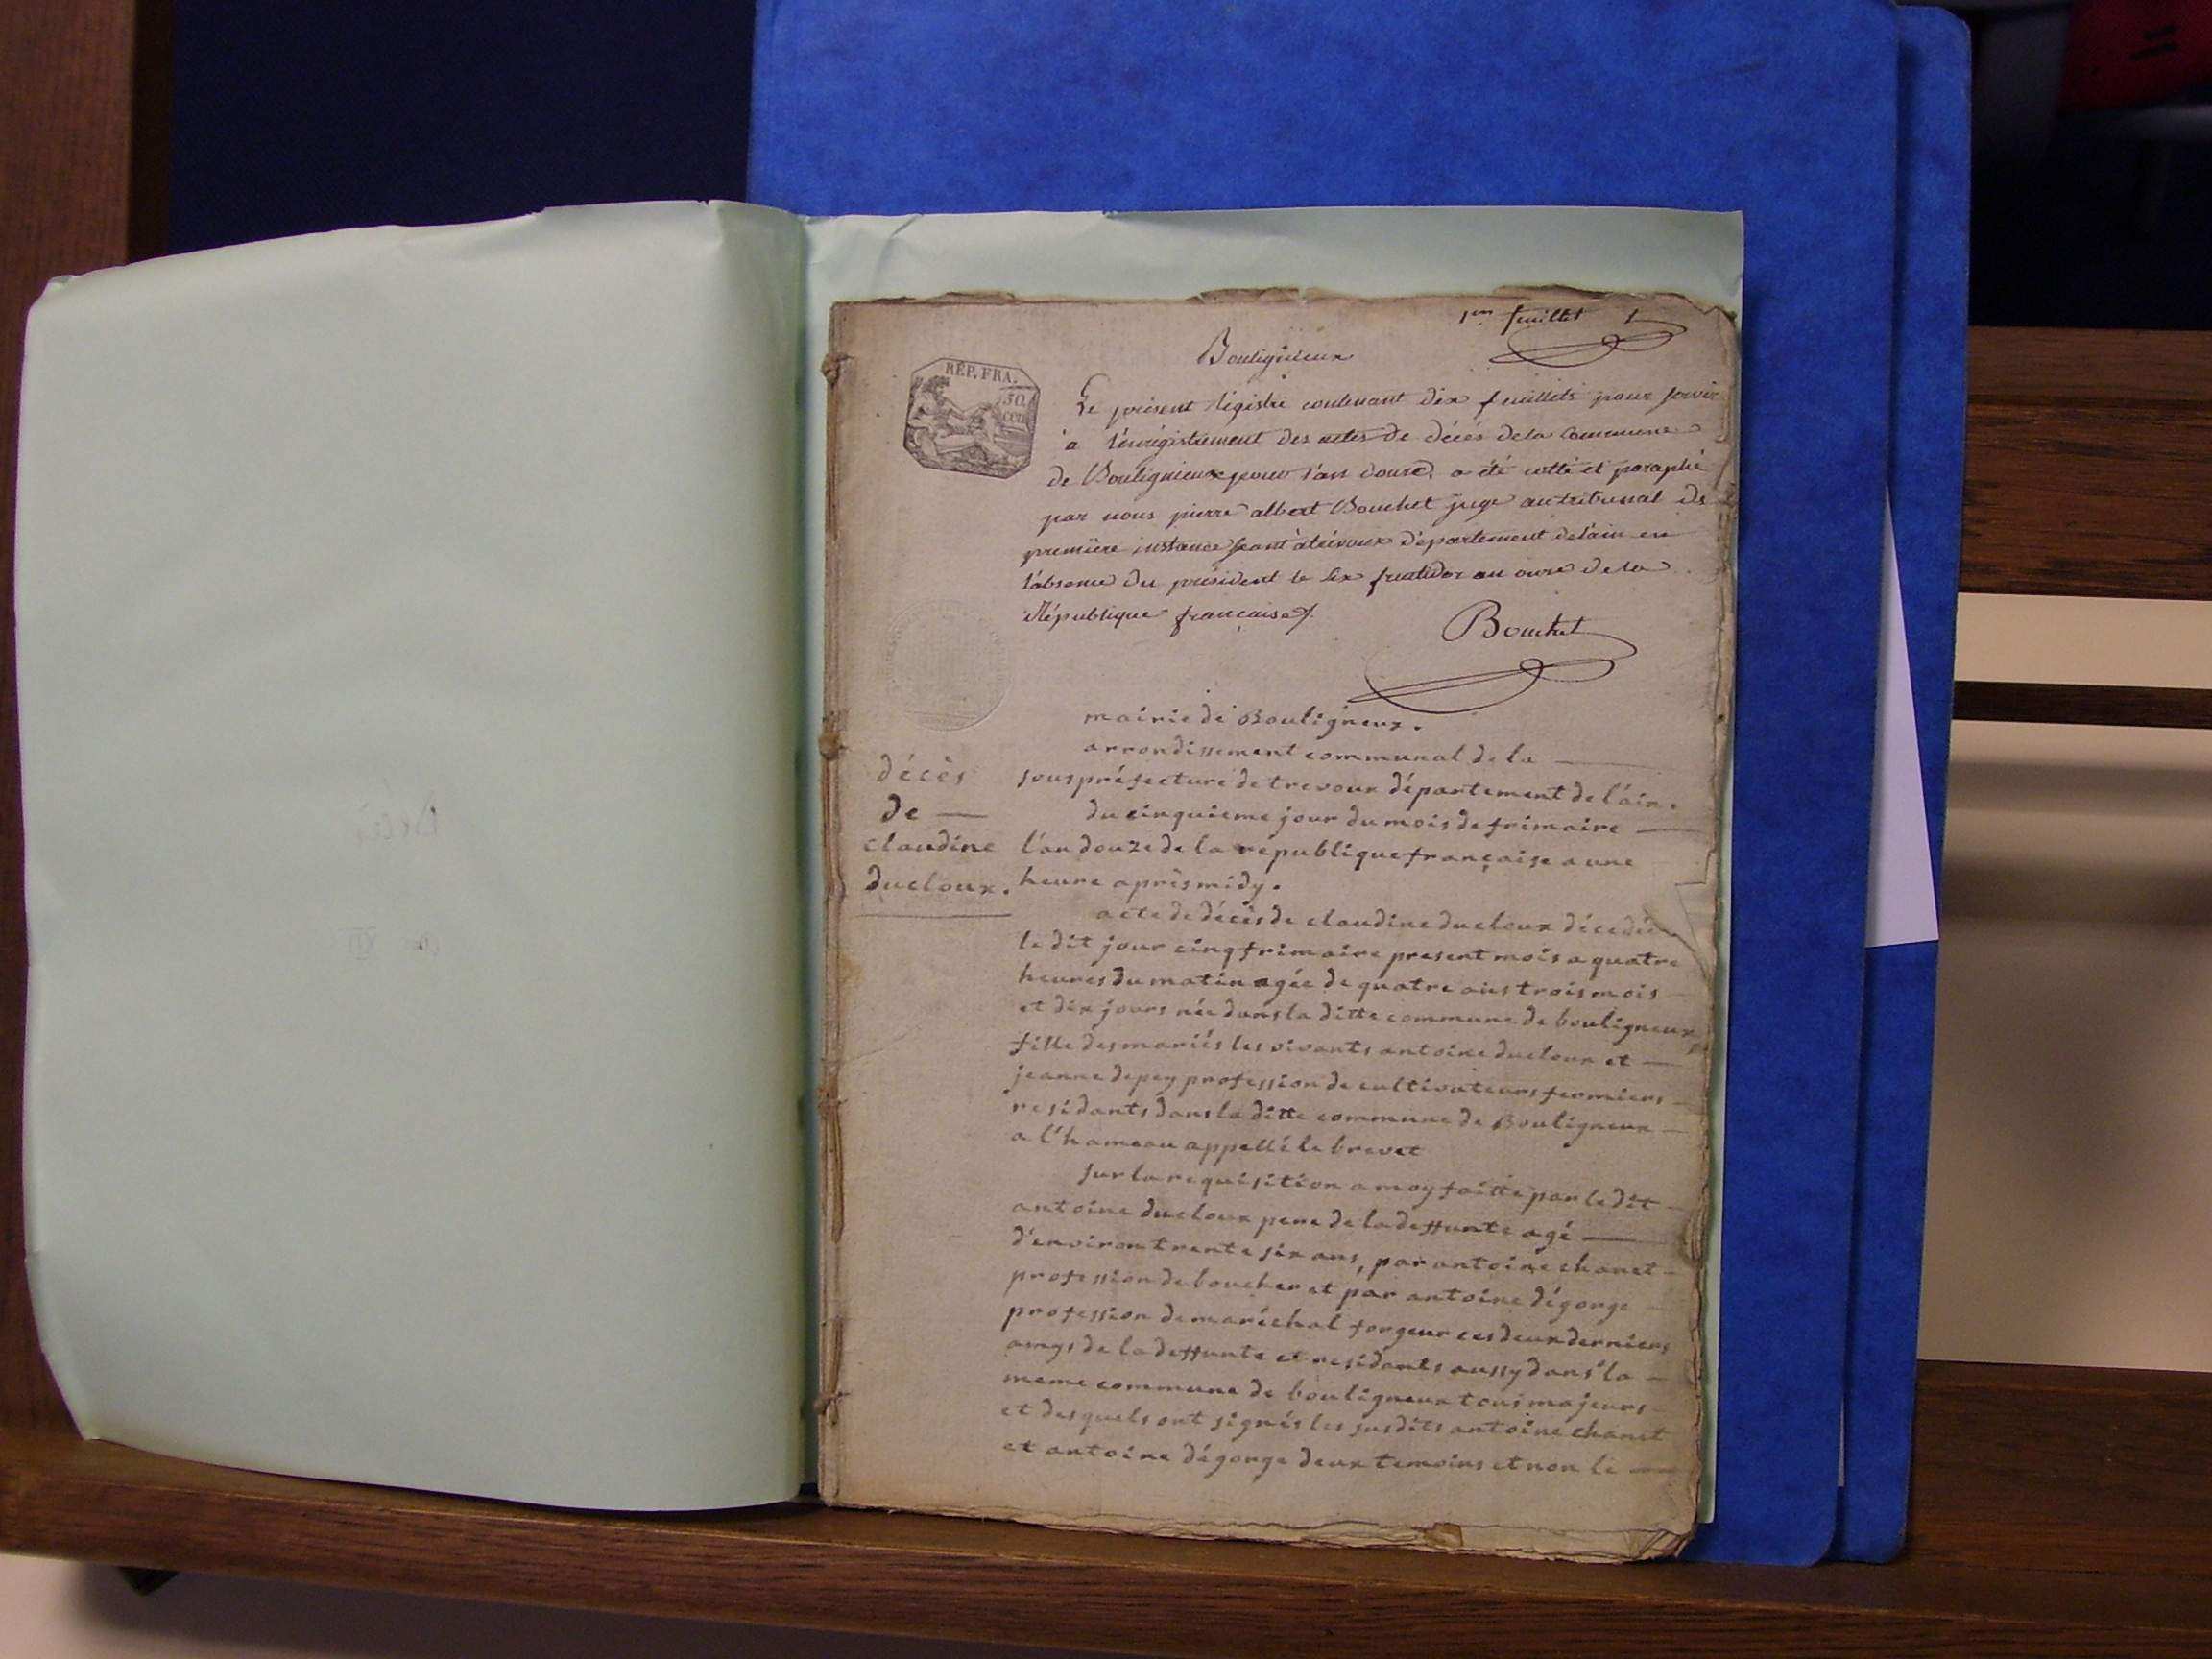 1er feuillet 1
Bouligneux
REP. FRA.
50.
CEN
Le présent régistre contenant dix feuillets pour servir
a l'enrégistrement des actes de décés de la commune
de Bouligneux pour l'an douze, a été cotté et paraphé
par nous pierre albert Bouchet juge au tribunal de
première instance séant à trévoux département de l'ain en
l'absence du président le six fructidor an onze de la
République française
Bouchet
mairie de Bouligneux.
arrondissement communal de la
sous préfecture de trevoux département de l'ain.
du cinquieme jour du mois de frimaire
l'an douze de la république française a une
heure après midy.
décès
de
claudine
ducloux.
acte de décès de claudine ducloux décedée
le dit jour cinq frimaire present mois a quatre
heures du matin agée de quatre ans trois mois
et dix jours née dans la ditte commune de bouligneux
fille des mariés les vivants antoine ducloux et
jeanne depey profession de cultivateurs fermiers
residants dans la ditte commune de Bouligneux
a l'hameau appellé le brevet
sur la requisition a moy faitte par le dit
antoine ducloux pere de la deffunte agé
d'environ trente six ans, par antoine chanet
profession de boucher et par antoine dégorge
profession de maréchal forgeur ces deux derniers
amys de la deffunte et residants aussy dans la
meme commune de bouligneux tous majeurs
et desquels ont signés les susdits antoine chanet
et antoine dégorge deux temoins et non le